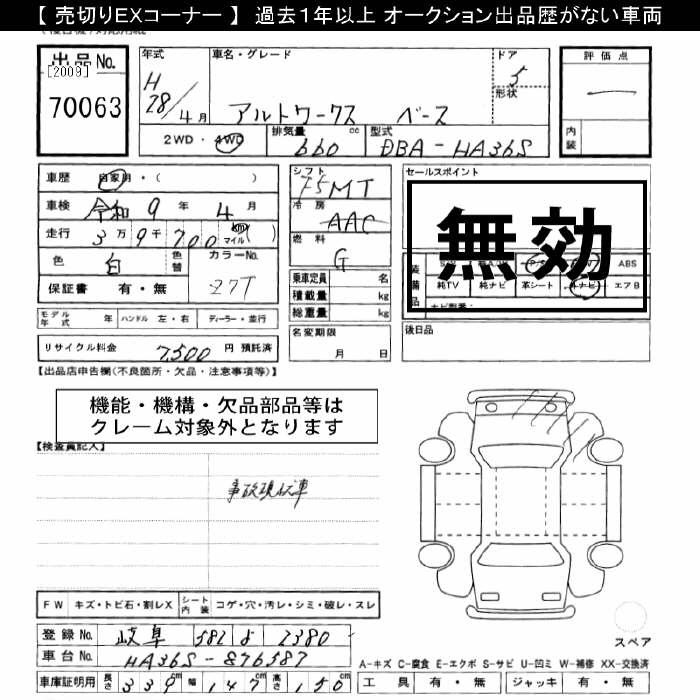 【 売切りEXコーナー 】 過去1年以上 オークション出品歴がない車両
出品No.
[2009]
70063
年式
H
28/4月
車名・グレード
アルトワークス ベース
ドア
5
形状
評価点
—
内装
2WD・4WD
排気量 660 cc
型式 DBA-HA36S
車歴 自家用・( )
車検 令和 9 年 4 月
走行 3万9千700 km マイル ( )
色 白
色替
カラーNo. Z7T
保証書 有・無
シフト
F5MT
冷房
AAC
燃料
G
乗車定員 名
積載量 kg
総重量 kg
セールスポイント
無効
装備品
ABS
純TV 純ナビ 革シート エアB
モデル年式 年 ハンドル 左・右 ディーラー・並行
リサイクル料金 7,500 円 預託済
名変期限
月 日
後日品
【出品店申告欄(不良箇所・欠品・注意事項等)】
機能・機構・欠品部品等は
クレーム対象外となります
【検査員記入】
事故現状車
FW キズ・トビ石・割レX
シート内装 コゲ・穴・汚レ・シミ・破レ・スレ
登録No. 岐阜 582 を 2380
車台No. HA36S-876587
車庫証明用 長さ 339cm 幅 147cm 高さ 150cm
スペア
A-キズ C-腐食 E-エクボ S-サビ U-凹ミ W-補修 XX-交換済
工具 有・無 ジャッキ 有・無